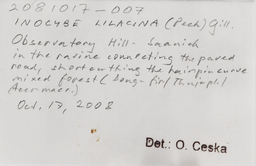 2081017-007
INOCYBE LILACINA (Peck) Gill.
Observatory Hill - Saanich
in the ravine connecting the paved
road, short cutting the hairpin curve
mixed forest (Doug-fir/Th.n.pl./
Acer macr.)
Oct. 17, 2008
Det.: O. Ceska